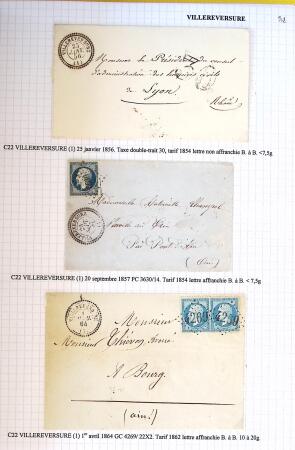 VILLEREVERSURE
Monsieur le Président du conseil
d'administration des hospices civils
de Lyon
Rhône
C22 VILLEREVERSURE (1) 25 janvier 1856. Taxe double-trait 30, tarif 1854 lettre non affranchie B. à B. <7,5g
Mademoiselle
Ain
C22 VILLEREVERSURE (1) 20 septembre 1857 PC 3630/14. Tarif 1854 lettre affranchie B. à B. < 7,5g
4269
Monsieur
Monsieur Thévon
A Bourg
(ain)
C22 VILLEREVERSURE (1) 1er avril 1864 GC 4269/ 22X2. Tarif 1862 lettre affranchie B. à B. 10 à 20g.